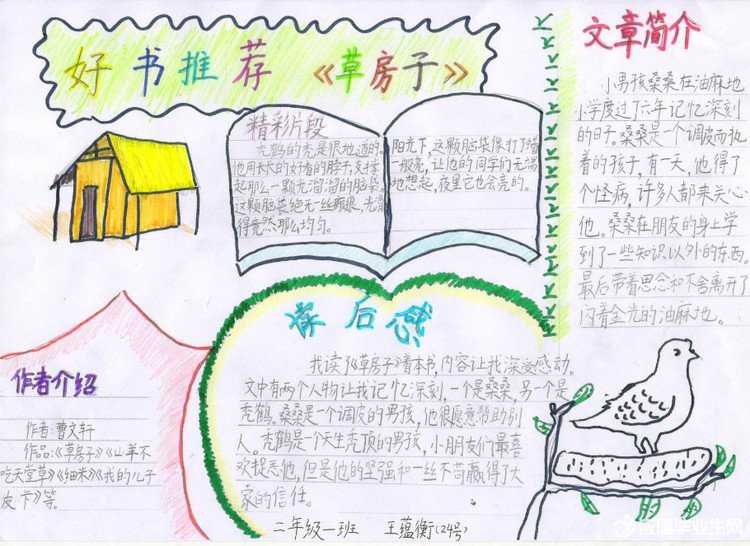 好书推荐 《草房子》
精彩片段
秃鹤的秃是很地道的。
他用长长的好看的脖子,支撑
起那么一颗光溜溜的脑袋。
这颗脑袋绝无一丝瘢痕,光滑
得竟然那么均匀。
阳光下,这颗脑袋像打了蜡
一般亮,让他的同学们无端
地想起,夜里它也会亮的。
文章简介
小男孩桑桑在油麻地
小学度过了六年记忆深刻
的日子。桑桑是一个调皮而执
着的孩子,有一天,他得了
个怪病,许多人都来关心
他。桑桑在朋友的身上学
到了一些知识以外的东西。
最后带着思念和不舍离开了
闪着金光的油麻地。
作者介绍
作者:曹文轩
作品:《草房子》《山羊不
吃天堂草》《细米》《我的儿子
皮卡》等。
读后感
我读了《草房子》着本书,内容让我深受感动。
文中有两个人物让我记忆深刻,一个是桑桑,另一个是
秃鹤。桑桑是一个调皮的男孩,他很愿意帮助别
人。秃鹤是个天生秃顶的男孩,小朋友们最喜
欢捉弄他,但是他的坚强和一丝不苟赢得了大
家的信任。
二年级一班 王蕴衡(24号)
应届毕业生网